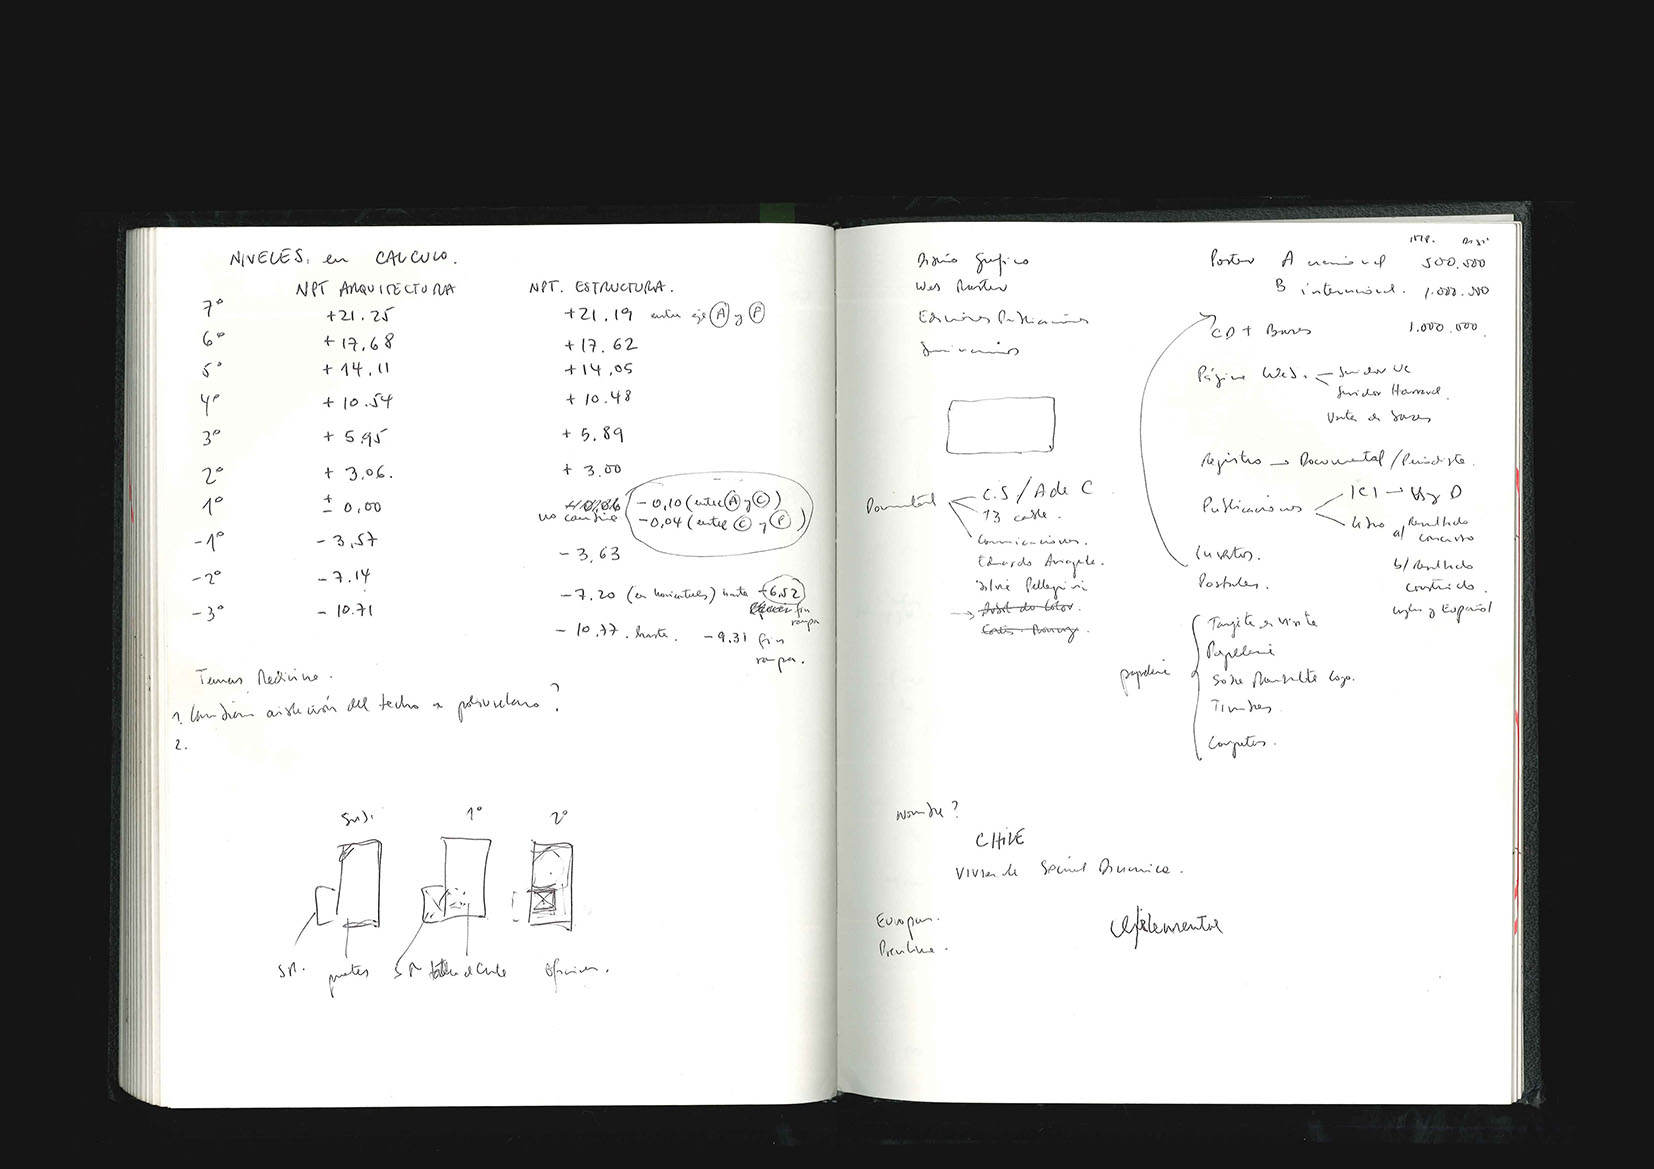 NIVELES, en CALCULO.
NPT ARQUITECTURA NPT. ESTRUCTURA.
7º +21.25 +21.19 entre eje A y P
6º +17.68 +17.62
5º +14.11 +14.05
4º +10.54 +10.48
3º +5.95 +5.89
2º +3.06. +3.00
1º ± 0,00 no cambia -0,10 (entre A y C)
-0,04 (entre C y P)
-1º -3,57 -3,63
-2º -7.14 -7.20 (en horizontales) hasta -6,52
fin rampa
-3º -10.71 -10.77. hasta. -9.31 fin
rampa.
Temas Medicina.
1. Cambiar aislación del techo a poliuretano?
2.
Sub. 1º 2º
SM. SM Oficinas.
Diseño Grafico
Web Master
Ediciones Publicaciones
Seminarios
Documental C.S / A de C
13 cable.
Comunicaciones.
Eduardo
Silvia Pellegrini
Arbol de Color.
Poster A nacional 500.000
B internacional. 1.000.000
CD + Bases 1.000.000.
Página Web. Servidor UC
Servidor Harvard.
Venta de bases
Registro → Documental / Periodista.
Publicaciones
Libro a/ Resultado
concurso
b/ Resultado
construido.
Ingles y Español
Insertos.
Postales.
papeleria
Tarjeta de visita
Papeleria
Sobre Logo.
Timbres
Carpetas.
Nombre?
CHILE
Vivienda Social Dinamica.
Europan.
Elemental